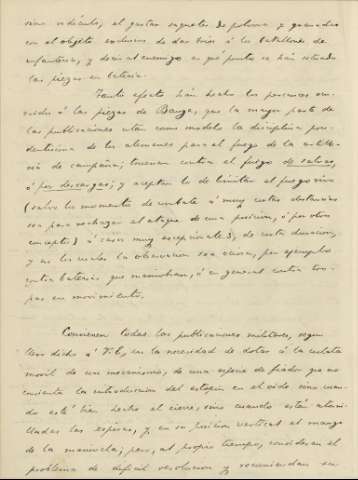 sino ridículo, el gastar saquetes de pólvora y granadas
con el objeto exclusivo de dar bríos á los batallones de
infantería, y decir al enemigo en qué puntos se han situado
las piezas en batería.
Tanto efecto han hecho los percances
á las piezas de Bange, que la mayor parte de
las publicaciones citan como modelo la disciplina
de los alemanes para el fuego de la
de campaña; truenan contra el fuego de salvas,
ó por descargas; y aceptan lo de limitar el fuego vivo
(salvo los momentos de combate á muy cortas distancias
sea para rechazar el ataque de una posición, ó por otros
conceptos) á casos muy excepcionales, de corta duración,
y en los cuales la observación sea escasa, por ejemplo
contra baterías que maniobran, ó en general contra tro-
pas en movimiento.
Convienen todas las publicaciones militares, según
he dicho á V.E., en la necesidad de dotar á la culata
móvil de un mecanismo, de una especie de fiador que no
consienta la introducción del estopín en el oído sino cuan-
do esté bien hecho el cierre, sino cuando están atorni-
lladas las espiras, y en su posición vertical el mango
de la manivela; pero, al propio tiempo, consideran el
problema de difícil resolución y recomiendan su